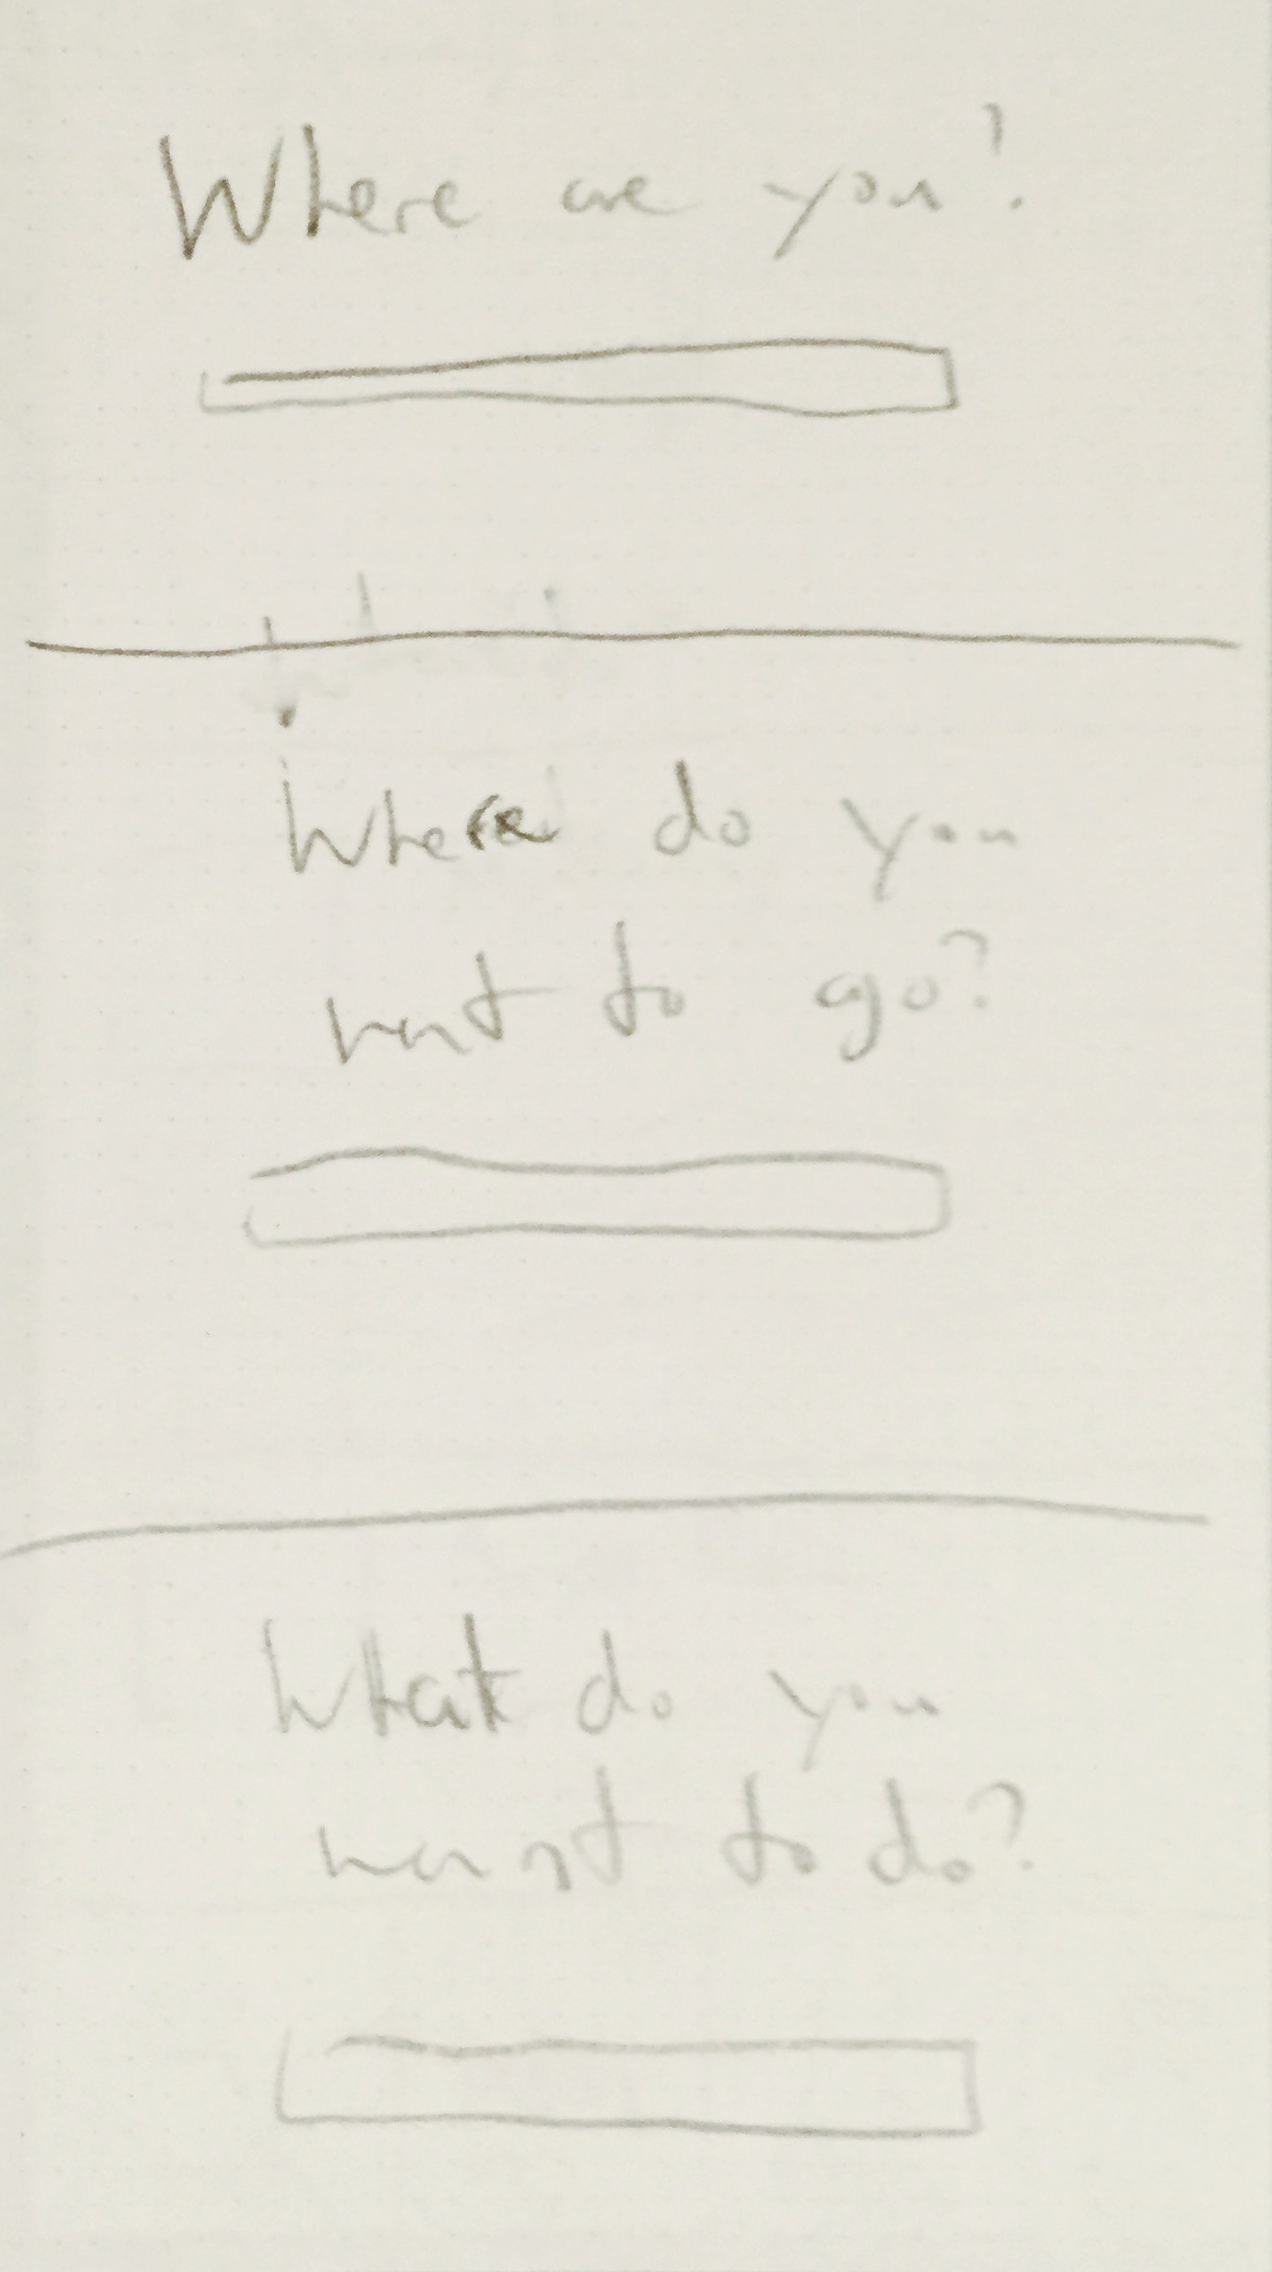 Where are you?
Where do you
want to go?
What do you
want to do?